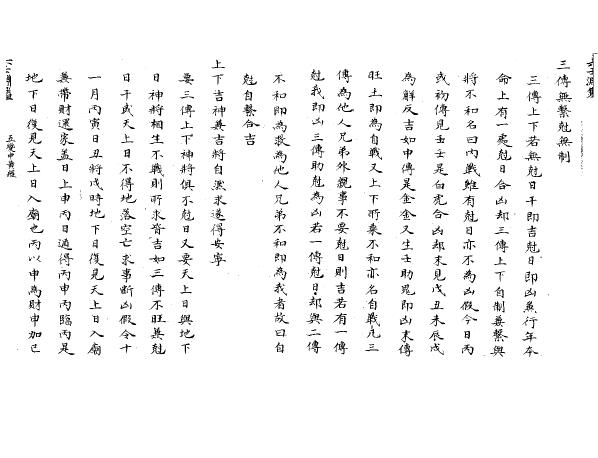 三傳無繫尅無制
三傳上下若無尅日干即吉尅日即凶兼行年本
命上有一處尅日合凶却三傳上下自制兼繫與
將不和名曰内戰雖有尅日亦不為凶假令日丙
或初傳見壬壬是白虎合凶却末見戊丑未辰戌
為解反吉如中傳是金金又生壬助鬼即凶末傳
旺土即為自戰又上下所乘不和亦名自戰凡三
傳為他人兄弟外親事不要尅日則吉若有一傳
尅我即凶三傳助尅為凶若一傳尅日却與二傳
不和即為救為他人兄弟不和即為我者故曰自
尅自繫合吉
上下吉神兼吉將自濃求遂得安寧
要三傳上下神將俱不尅日又要天上日與地下
日神將相生不戰則所求皆吉如三傳不旺兼尅
日干或天上日不得地落空亡求事斷凶假令十
一月丙寅日丑將戌時地下日復見天上日入廟
兼帶財還家蓋日上申丙日適得丙申丙臨丙是
地下日復見天上日入廟也丙以申為財申加巳
五變中黃經